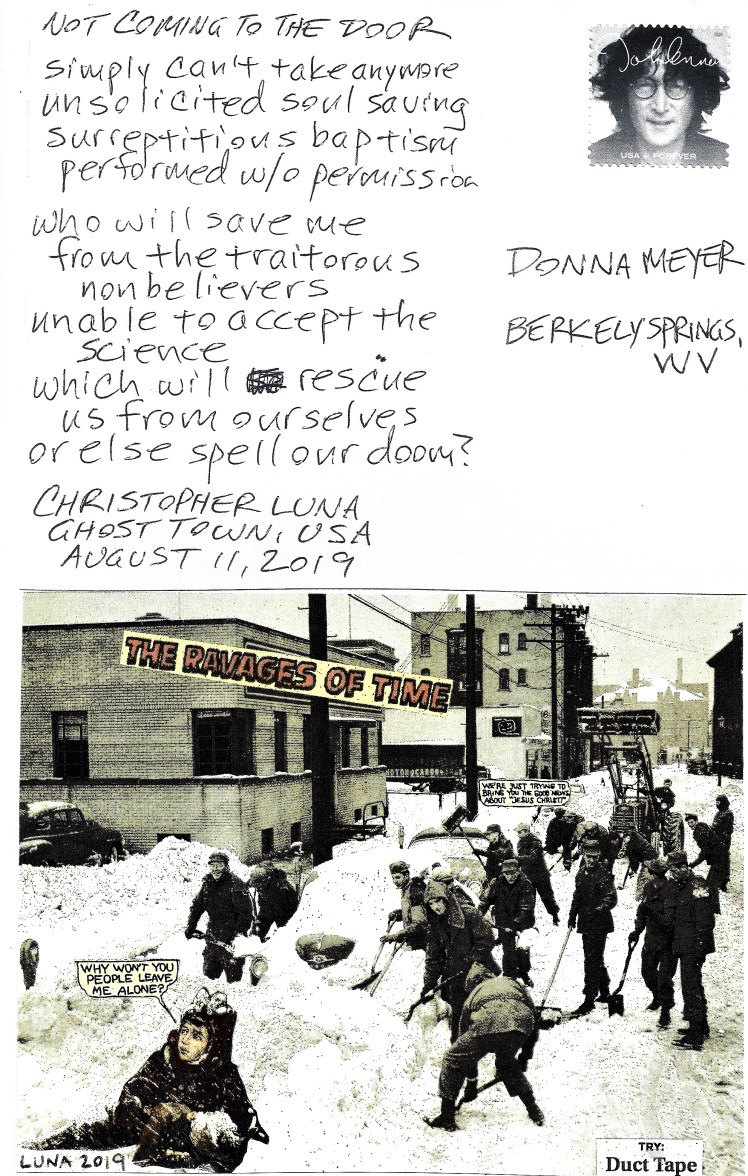 NOT COMING TO THE DOOR
simply can't take anymore
unsolicited soul saving
surreptitious baptism
performed w/o permission
who will save me
from the traitorous
nonbelievers
unable to accept the
science
which will rescue
us from ourselves
or else spell our doom?
CHRISTOPHER LUNA
GHOST TOWN, USA
AUGUST 11, 2019
John Lennon
USA FOREVER
DONNA MEYER
BERKELY SPRINGS,
WV
THE RAVAGES OF TIME
WE'RE JUST TRYING TO
BRING YOU THE GOOD NEWS
ABOUT "JESUS CHRIST!"
WHY WON'T YOU
PEOPLE LEAVE
ME ALONE?
LUNA 2019
TRY:
Duct Tape